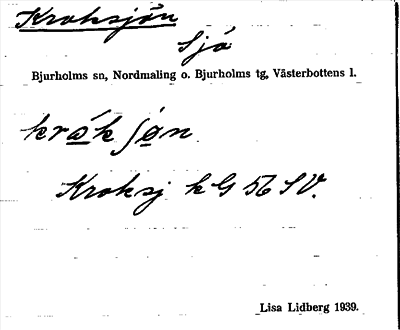 Kroksjön
Sjö
Bjurholms sn, Nordmaling o. Bjurholms tg, Västerbottens l.
kråkʃøn
Kroksj kG 56 SV.
Lisa Lidberg 1939.